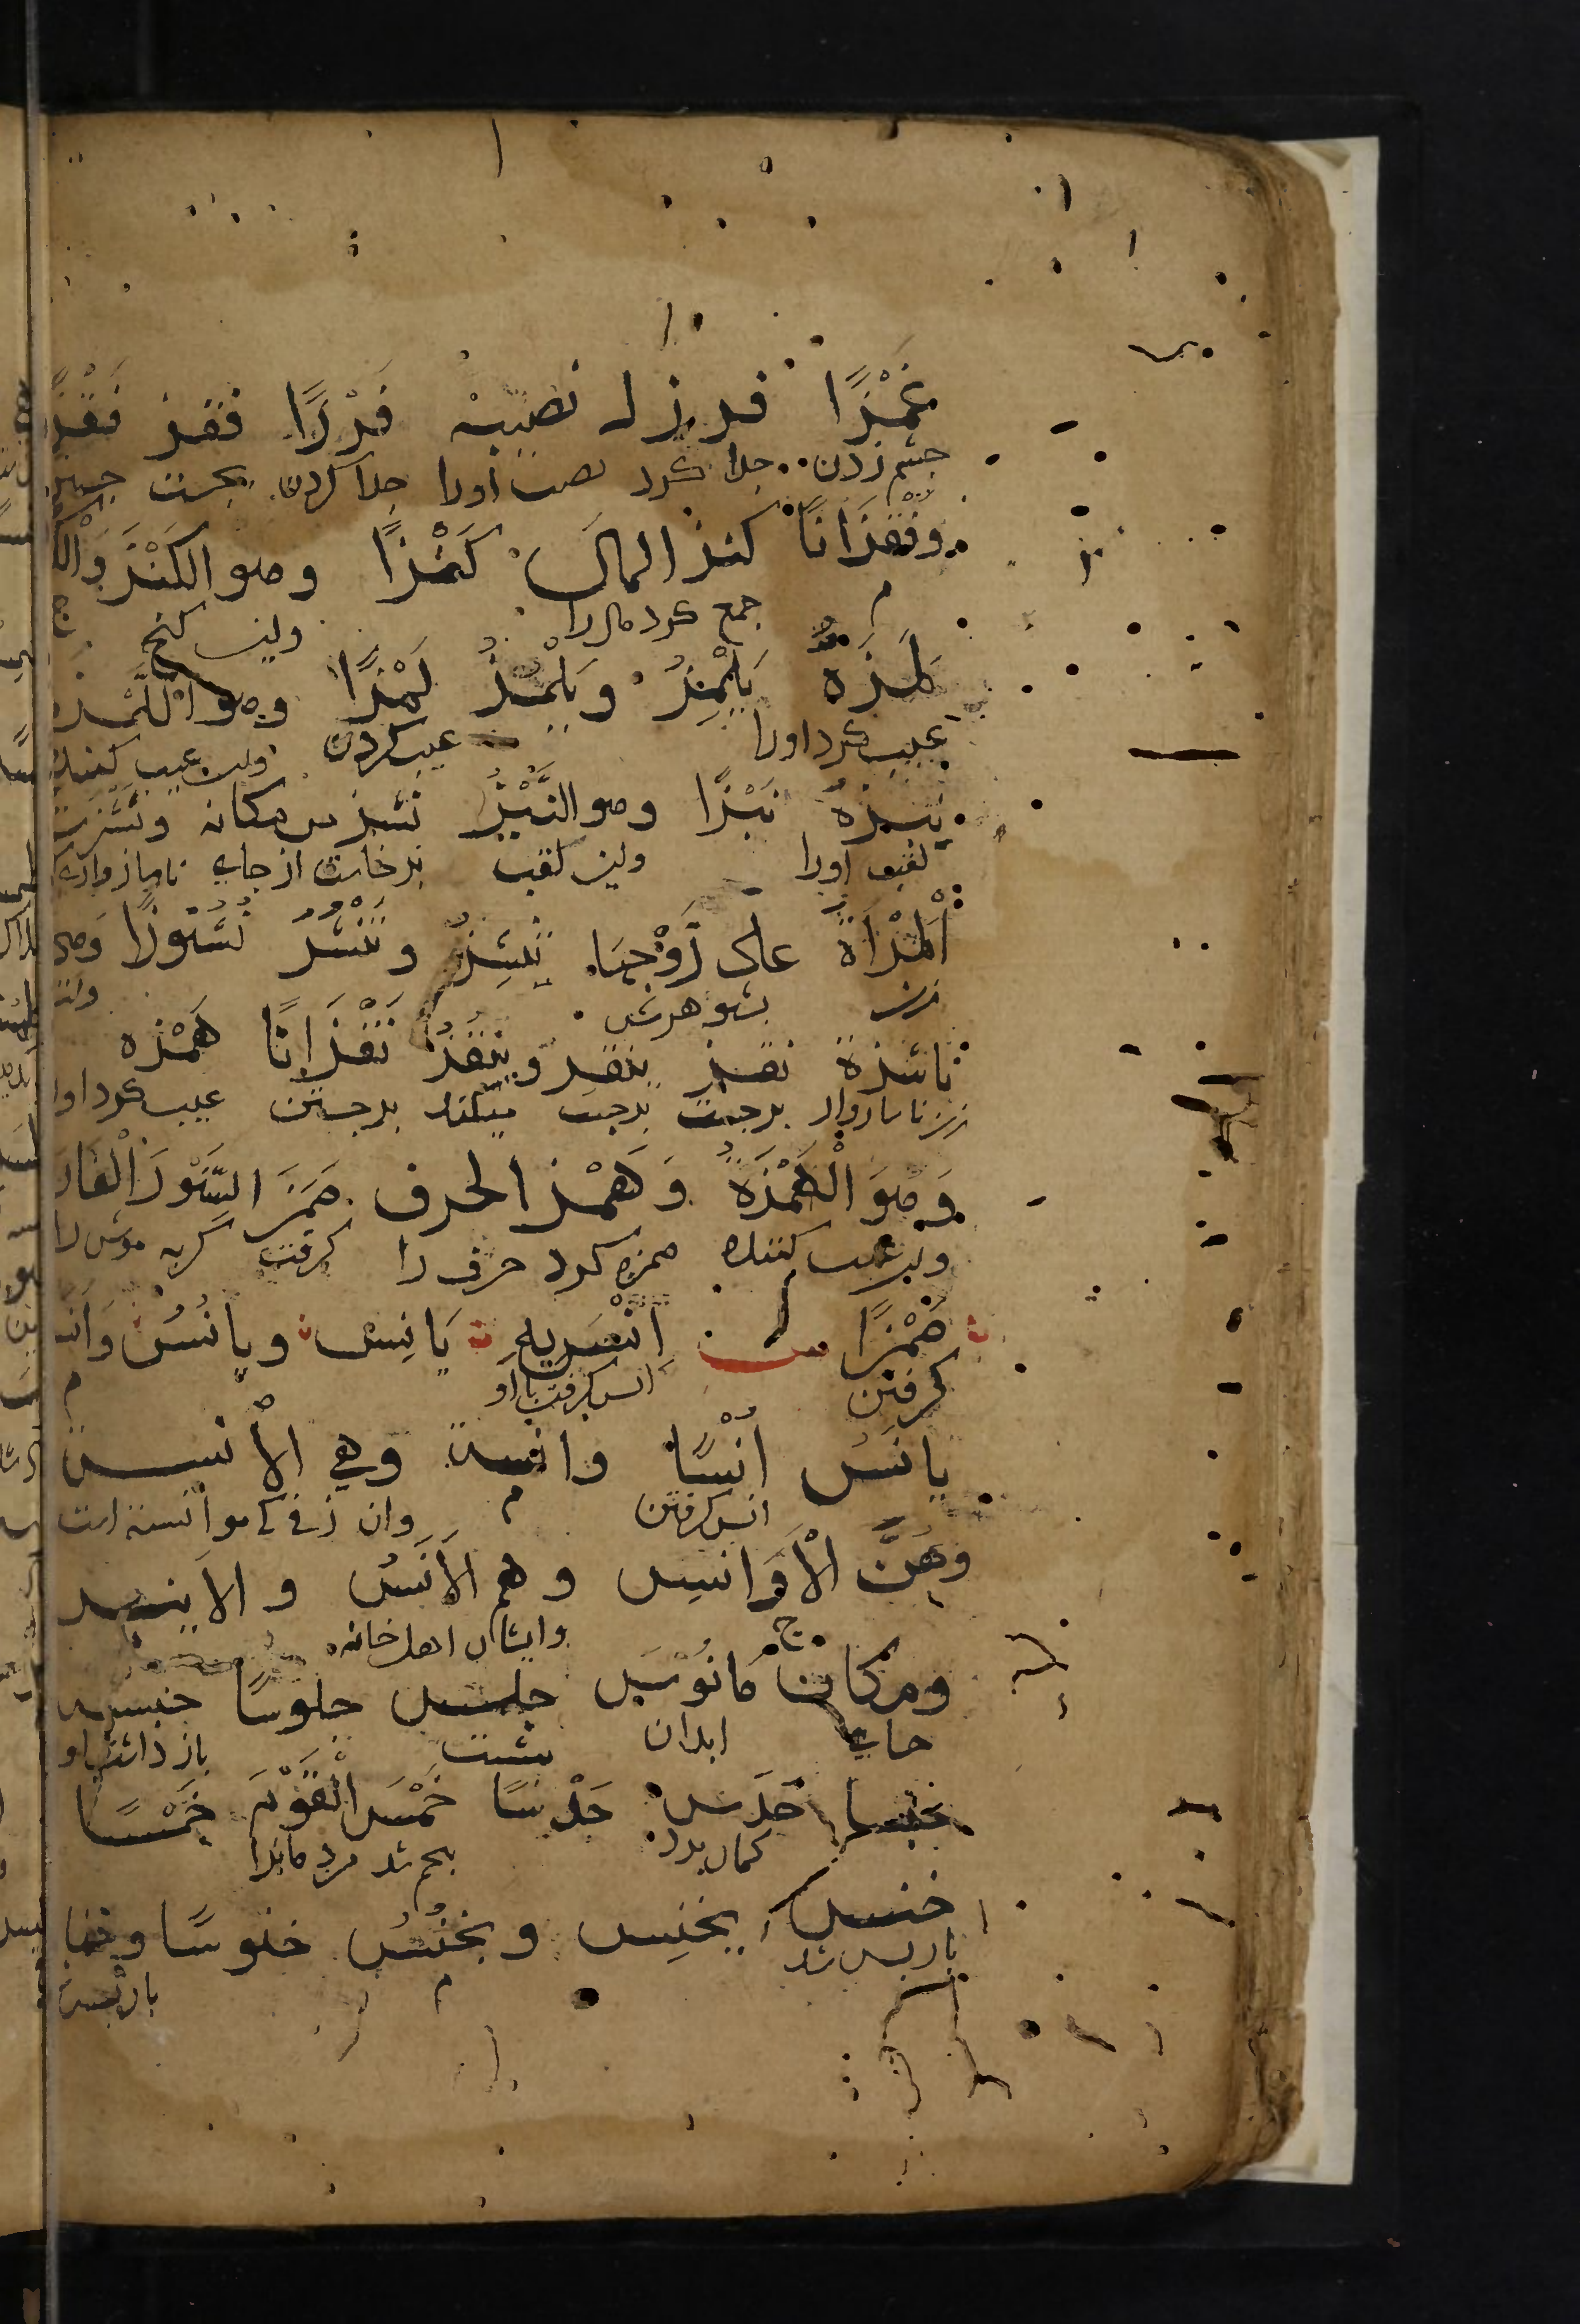 غَمْزًا فرز له نصيبه فَرْزًا قفز قَفْزًا
چشم زدن جدا کرد نصیب اورا جدا کردن بجست جستن
وَقَفَزَانًا كنز المالَ كَنْزًا وهو الكَنْزُ وَالْكُ
جمع کرد مال را واین گنج
لَمَزَهُ يَلْمِزُ ويَلْمُزُ لَمْزًا وهو اللُّمَزَة
عیب کرد اورا عیب کردن واین عیب کننده
نبزهُ نَبْزًا وهو النَّبَزُ نشز من مكانه ونَشَزَتْ
لقب اورا واین لقب برخاست از جای ناسازواری
اَلْمَرْأَةُ على زَوْجِهَا تَنْشِزُ وتَنْشُزُ نُشُوزًا وهى
زن بشوهرش واین
ناشزة نقز ينقز وينقُزُ نَقَزَانًا هَمَزه
زن ناسازوار برجست برجست میکند برجستن عیب کرد اورا
وَهوَ الْهُمَزَةُ وَهَمَز الحرف هَمَزَ السِّنَّوْرُ الْفَارَ
واین عیب کننده همزه کرد حرف را گرفت گربه موش را
هَمْزًا س اَنِسَ بِهِ يَانِسُ ويانُسُ وَاَنَسَ
گرفتن انس گرفت با او
يانَسُ اُنْسًا وانسة وهي الآنسة
انس گرفتن وان زنی که هو آنسه است
وهُنَّ الْأَوَانِسِ وهم الأَنَسُ والانيس
وایشان اهل خانه
ومكان مَانُوسٌ جلس جلوسًا حبسه
جای ابدان نشست باز داشت او
حبسا حَدَسَ حَدْسًا خَمَسَ الْقَوْمَ خَمْسًا
گمان برد پنجم شد مردمانرا
خنس يخنِس ويخنُسُ خنوسًا وخنا
باز پس شد باز پس